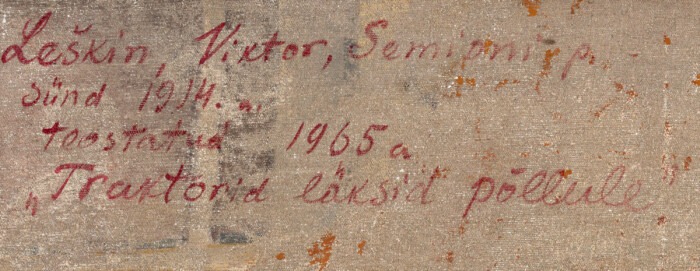 Leškin, Viktor, Semjoni p.
sünd 1914. a.
teostatud 1965 a
„Traktorid läksid põllule"